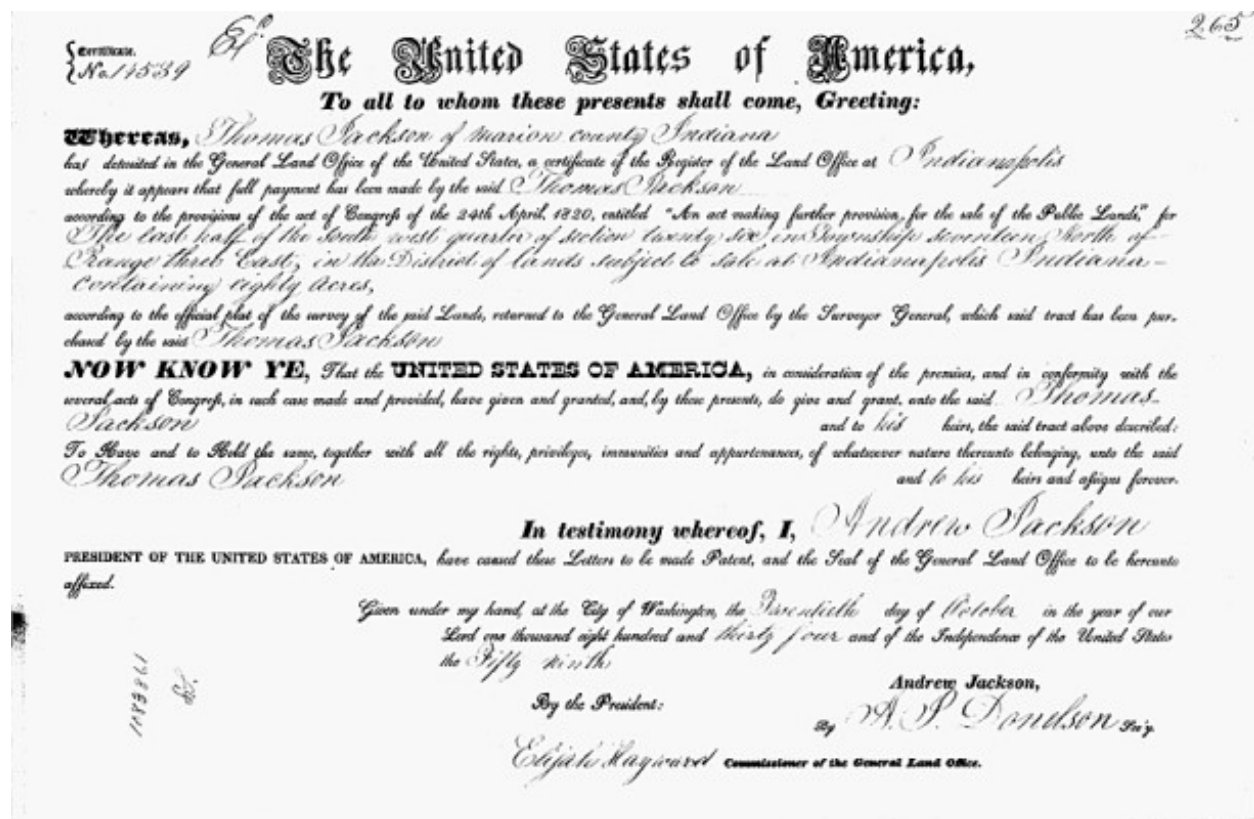 265
Certificate.
No. 14539
The United States of America,
To all to whom these presents shall come, Greeting:
Whereas, Thomas Jackson of Marion county Indiana
has deposited in the General Land Office of the United States, a certificate of the Register of the Land Office at Indianapolis
whereby it appears that full payment has been made by the said Thomas Jackson
according to the provisions of the act of Congress of the 24th April, 1820, entitled "An act making further provision for the sale of the Public Lands," for
The east half of the south west quarter of section twenty six in Township seventeen North of
Range three East, in the District of lands subject to sale at Indianapolis Indiana-
Containing eighty acres,
according to the official plat of the survey of the said Lands, returned to the General Land Office by the Surveyor General, which said tract has been pur-
chased by the said Thomas Jackson
NOW KNOW YE, That the UNITED STATES OF AMERICA, in consideration of the premises, and in conformity with the
several acts of Congress, in such case made and provided, have given and granted, and, by these presents, do give and grant, unto the said Thomas
Jackson and to his heirs, the said tract above described:
To Have and to Hold the same, together with all the rights, privileges, immunities and appurtenances, of whatsoever nature thereunto belonging, unto the said
Thomas Jackson and to his heirs and assigns forever.
In testimony whereof, I, Andrew Jackson
PRESIDENT OF THE UNITED STATES OF AMERICA, have caused these Letters to be made Patent, and the Seal of the General Land Office to be hereunto
affixed.
Given under my hand, at the City of Washington, the Twentieth day of October in the year of our
Lord one thousand eight hundred and thirty four and of the Independence of the United States
the Fifty ninth
Andrew Jackson,
By the President:
By A. J. Donelson Sec'y.
Elijah Hayward Commissioner of the General Land Office.